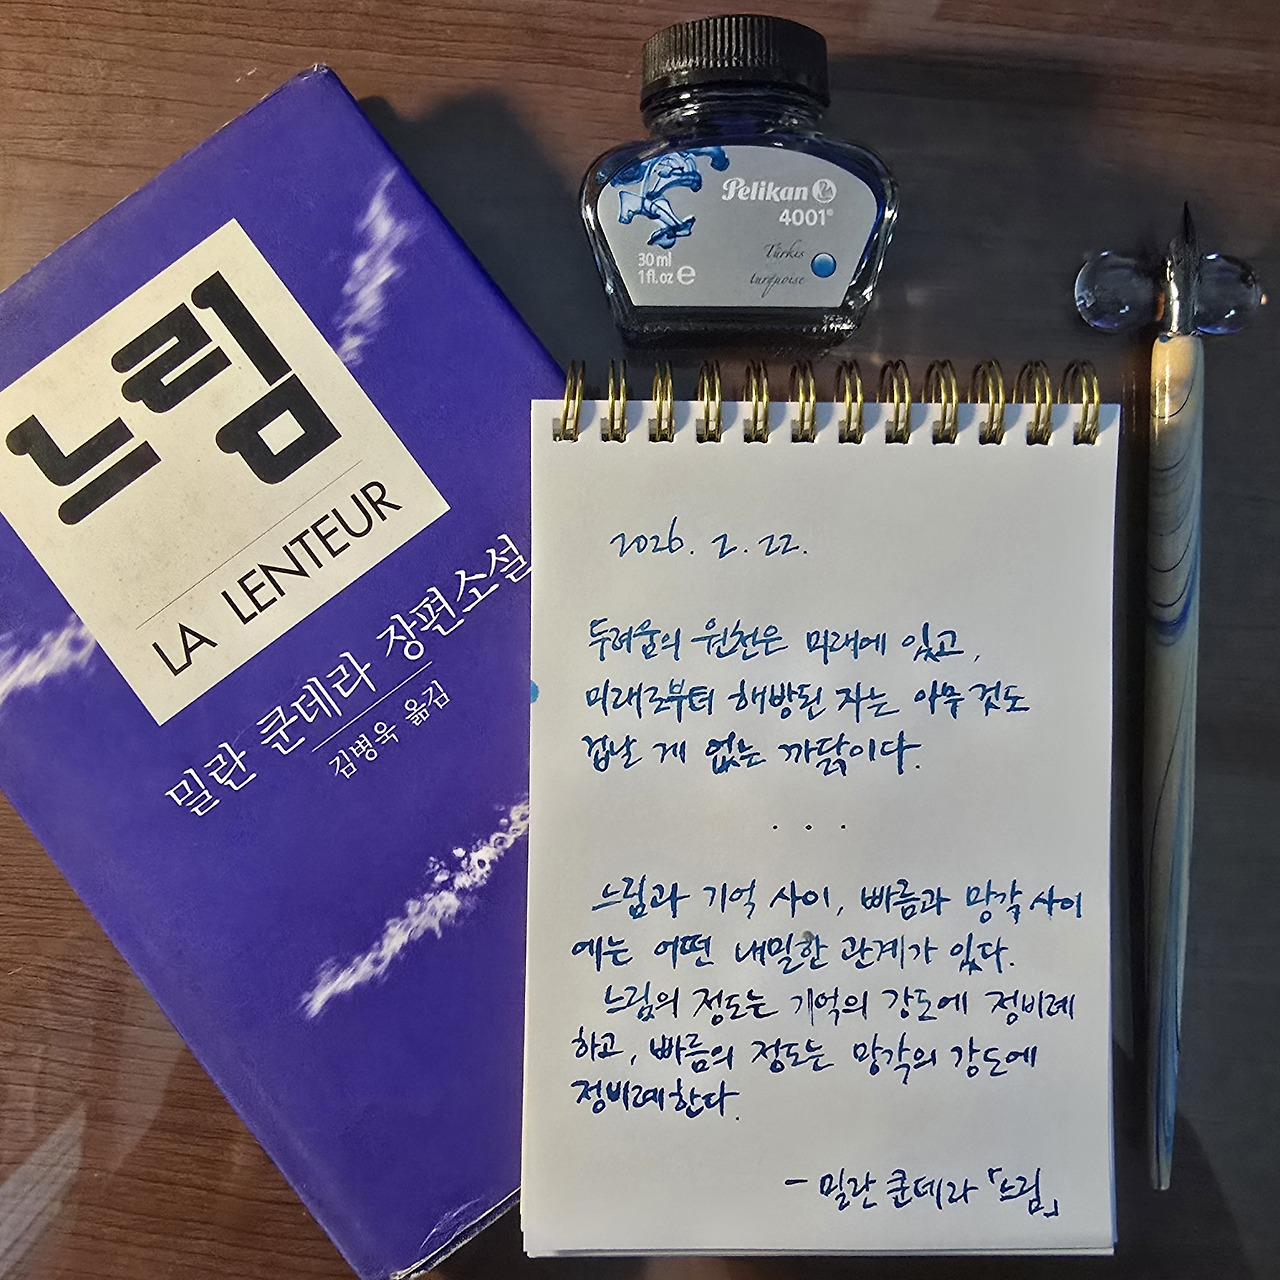 느림
LA LENTEUR
밀란 쿤데라 장편소설
김병욱 옮김
Pelikan
4001®
30 ml
1 fl. oz e
Türkis
turquoise
2026. 2. 22.
두려움의 원천은 미래에 있고,
미래로부터 해방된 자는 아무 것도
겁날 게 없는 까닭이다.
. . .
느림과 기억 사이, 빠름과 망각 사이
에는 어떤 내밀한 관계가 있다.
느림의 정도는 기억의 강도에 정비례
하고, 빠름의 정도는 망각의 강도에
정비례한다.
- 밀란 쿤데라 「느림」